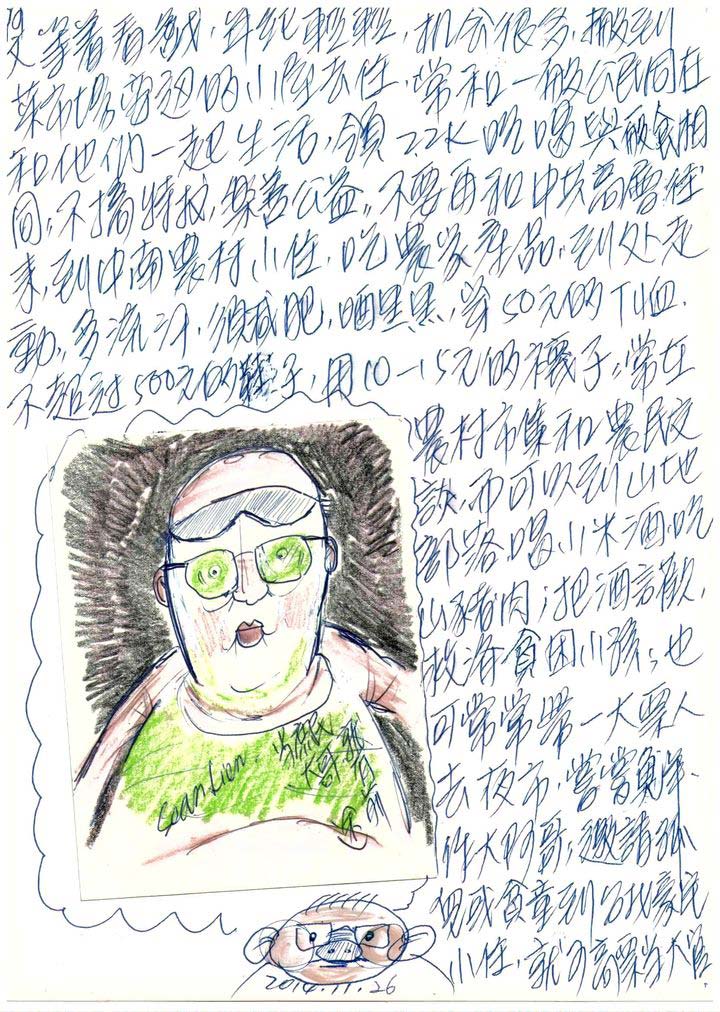 19
又等著看戲，年紀輕輕，机會很多，搬到
菜市場旁边的小陋去住，常和一般公民同在
和他们一起生活，領22K吃喝與飯食相
同，不搞特权，樂善公益，不要再和中坎高層往
來，到中南農村小住，吃農家產品，到处走
動，多流汗，很減肥，晒黑黑，穿50元的T恤，
不超过500元的鞋子，用10-15元的襪子，常在
農村市集和農民交
談，而可以到山地
部落喝小米酒，吃
山豬肉；把酒言歡，
救濟貧困小孩；也
可常常帶一大票人
去夜市，嘗嘗
作大阿哥，邀請孤
兒或貧童到豪宅
小住，就可高票当大官
Sean Lien. 当庶民
大哥
2014.11.26